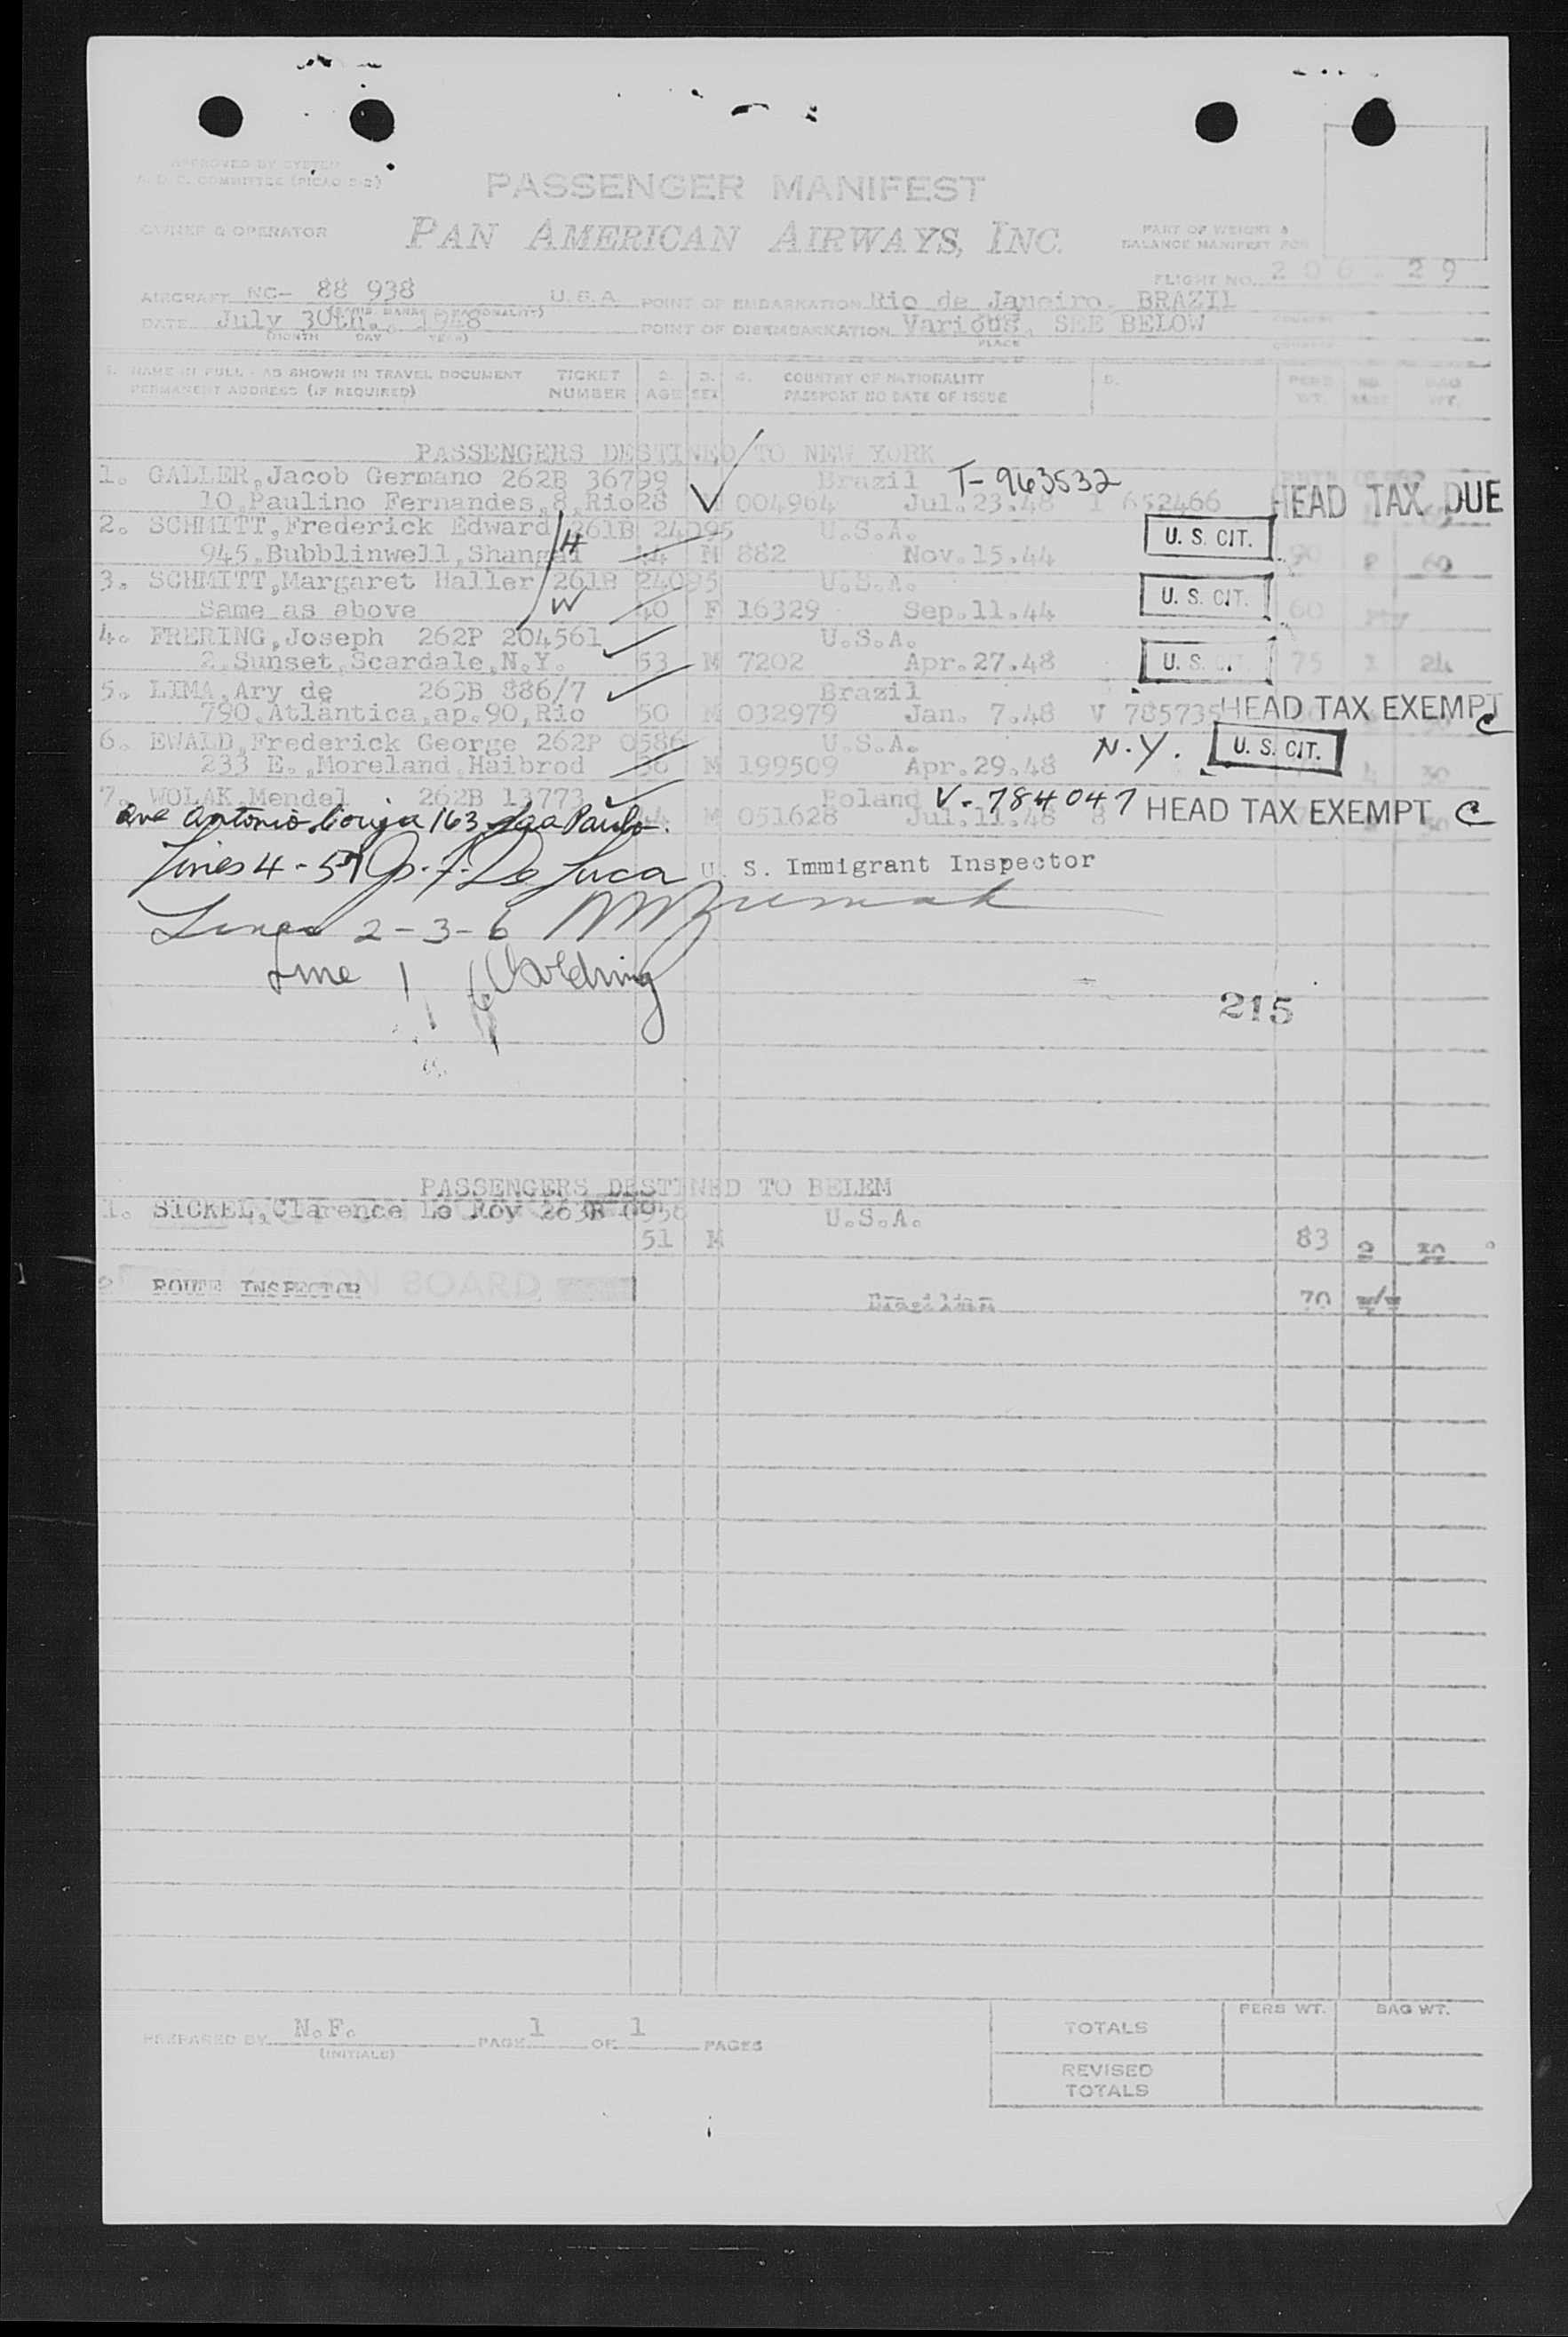 APPROVED BY SYSTEM
A. D. C. COMMITTEE (PICAO
PASSENGER MANIFEST
OWNER & OPERATOR PAN AMERICAN AIRWAYS, INC.
PART OF WEIGHT &
BALANCE MANIFEST FOR
FLIGHT NO. 206 29
AIRCRAFT NC- 88 938 U.S.A. POINT OF EMBARKATION Rio de Janeiro, BRAZIL
DATE July 30th., 1948 POINT OF DISEMBARKATION Various, SEE BELOW
(MONTH DAY YEAR) PLACE COUNTRY
1. NAME IN FULL - AS SHOWN IN TRAVEL DOCUMENT TICKET 2. 3. 4. COUNTRY OF NATIONALITY 5. PERS NO. BAG
PERMANENT ADDRESS (IF REQUIRED) NUMBER AGE SEX PASSPORT NO DATE OF ISSUE WT. WT.
PASSENGERS DESTINED TO NEW YORK
1. GALLER,Jacob Germano 262B 36799 Brazil T-963532
10,Paulino Fernandes,8,Rio 28 004964 Jul.23.48 I 652466 HEAD TAX DUE
2. SCHMITT,Frederick Edward 261B 24095 U.S.A. U. S. CIT.
945,Bubblinwell,Shangai H 44 M 882 Nov.15.44 90 2 60
3. SCHMITT,Margaret Haller 261B 24095 U.S.A. U. S. CIT.
Same as above W 40 F 16329 Sep.11.44 60
4. FRERING,Joseph 262P 204561 U.S.A.
2,Sunset,Scardale,N.Y. 53 M 7202 Apr.27.48 U. S. 75 24
5. LIMA,Ary de 263B 886/7 Brazil
790,Atlântica,ap.90,Rio 50 M 032979 Jan. 7.48 V 785735 HEAD TAX EXEMPT C
6. EWALD,Frederick George 262P 0586 U.S.A. N.Y. U. S. CIT.
233 E.,Moreland,Haibrod 38 M 199509 Apr.29.48 4 30
7. WOLAK,Mendel 262B 13773 Poland V-784047 HEAD TAX EXEMPT C
Ave Antonio 163 Sao Paulo. 44 M 051628 Jul.11.48
Lines 4-5-7 De Luca U. S. Immigrant Inspector
Lines 2-3-6
Line 1
215
PASSENGERS DESTINED TO BELEM
1. SICKEL,Clarence Le Roy 263B U.S.A.
51 M 83 2 30
2 ROUTE INSPECTOR ON BOARD
Brazilian 70
PREPARED BY N.F. PAGE 1 OF 1 PAGES
(INITIALS)
PERS WT. BAG WT.
TOTALS
REVISED
TOTALS